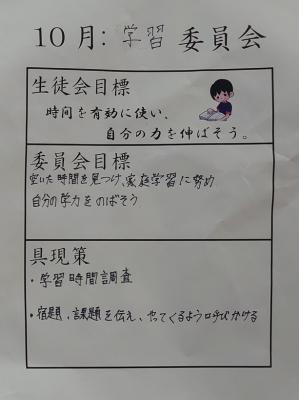 10月: 学習 委員会
生徒会目標
時間を有効に使い、
自分の力を伸ばそう。
委員会目標
空いた時間を見つけ、家庭学習に努め
自分の学力をのばそう
具現策
・学習時間調査
・宿題、課題を伝え、やってくるよう呼びかける